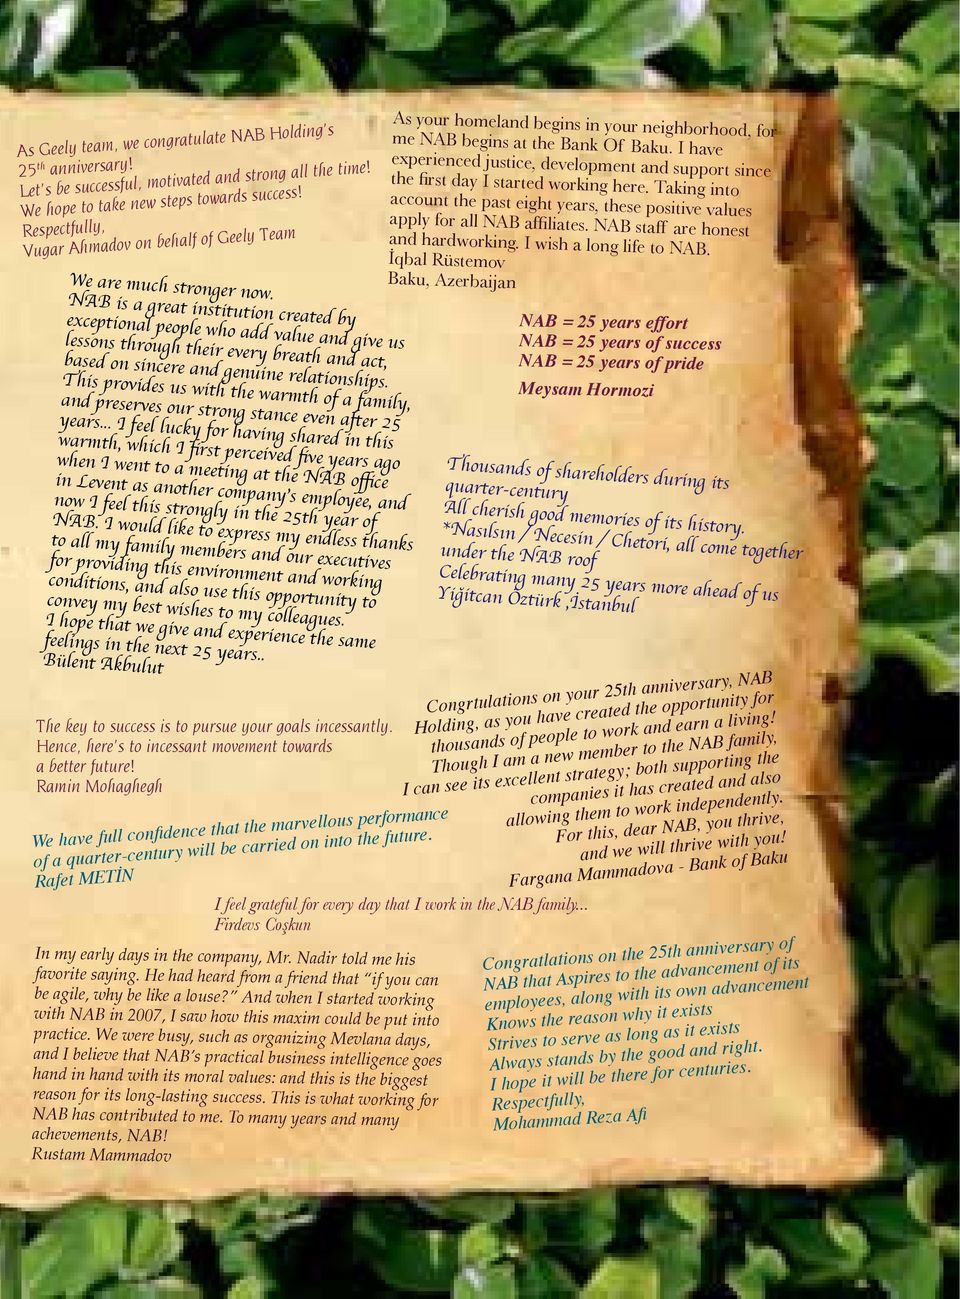 As Geely team, we congratulate NAB Holding's
25th anniversary!
Let's be successful, motivated and strong all the time!
We hope to take new steps towards success!
Respectfully,
Vugar Ahmadov on behalf of Geely Team
As your homeland begins in your neighborhood, for
me NAB begins at the Bank Of Baku. I have
experienced justice, development and support since
the first day I started working here. Taking into
account the past eight years, these positive values
apply for all NAB affiliates. NAB staff are honest
and hardworking. I wish a long life to NAB.
İqbal Rüstemov
Baku, Azerbaijan
We are much stronger now.
NAB is a great institution created by
exceptional people who add value and give us
lessons through their every breath and act,
based on sincere and genuine relationships.
This provides us with the warmth of a family,
and preserves our strong stance even after 25
years... I feel lucky for having shared in this
warmth, which I first perceived five years ago
when I went to a meeting at the NAB office
in Levent as another company's employee, and
now I feel this strongly in the 25th year of
NAB. I would like to express my endless thanks
to all my family members and our executives
for providing this environment and working
conditions, and also use this opportunity to
convey my best wishes to my colleagues.
I hope that we give and experience the same
feelings in the next 25 years..
Bülent Akbulut
NAB = 25 years effort
NAB = 25 years of success
NAB = 25 years of pride
Meysam Hormozi
Thousands of shareholders during its
quarter-century
All cherish good memories of its history.
*Nasılsın / Necesin / Chetori, all come together
under the NAB roof
Celebrating many 25 years more ahead of us
Yiğitcan Öztürk ,İstanbul
The key to success is to pursue your goals incessantly.
Hence, here's to incessant movement towards
a better future!
Ramin Mohaghegh
Congrtulations on your 25th anniversary, NAB
Holding, as you have created the opportunity for
thousands of people to work and earn a living!
Though I am a new member to the NAB family,
I can see its excellent strategy; both supporting the
companies it has created and also
allowing them to work independently.
For this, dear NAB, you thrive,
and we will thrive with you!
Fargana Mammadova - Bank of Baku
We have full confidence that the marvellous performance
of a quarter-century will be carried on into the future.
Rafet METİN
I feel grateful for every day that I work in the NAB family...
Firdevs Coşkun
In my early days in the company, Mr. Nadir told me his
favorite saying. He had heard from a friend that “if you can
be agile, why be like a louse?” And when I started working
with NAB in 2007, I saw how this maxim could be put into
practice. We were busy, such as organizing Mevlana days,
and I believe that NAB's practical business intelligence goes
hand in hand with its moral values: and this is the biggest
reason for its long-lasting success. This is what working for
NAB has contributed to me. To many years and many
achevements, NAB!
Rustam Mammadov
Congratlations on the 25th anniversary of
NAB that Aspires to the advancement of its
employees, along with its own advancement
Knows the reason why it exists
Strives to serve as long as it exists
Always stands by the good and right.
I hope it will be there for centuries.
Respectfully,
Mohammad Reza Afi